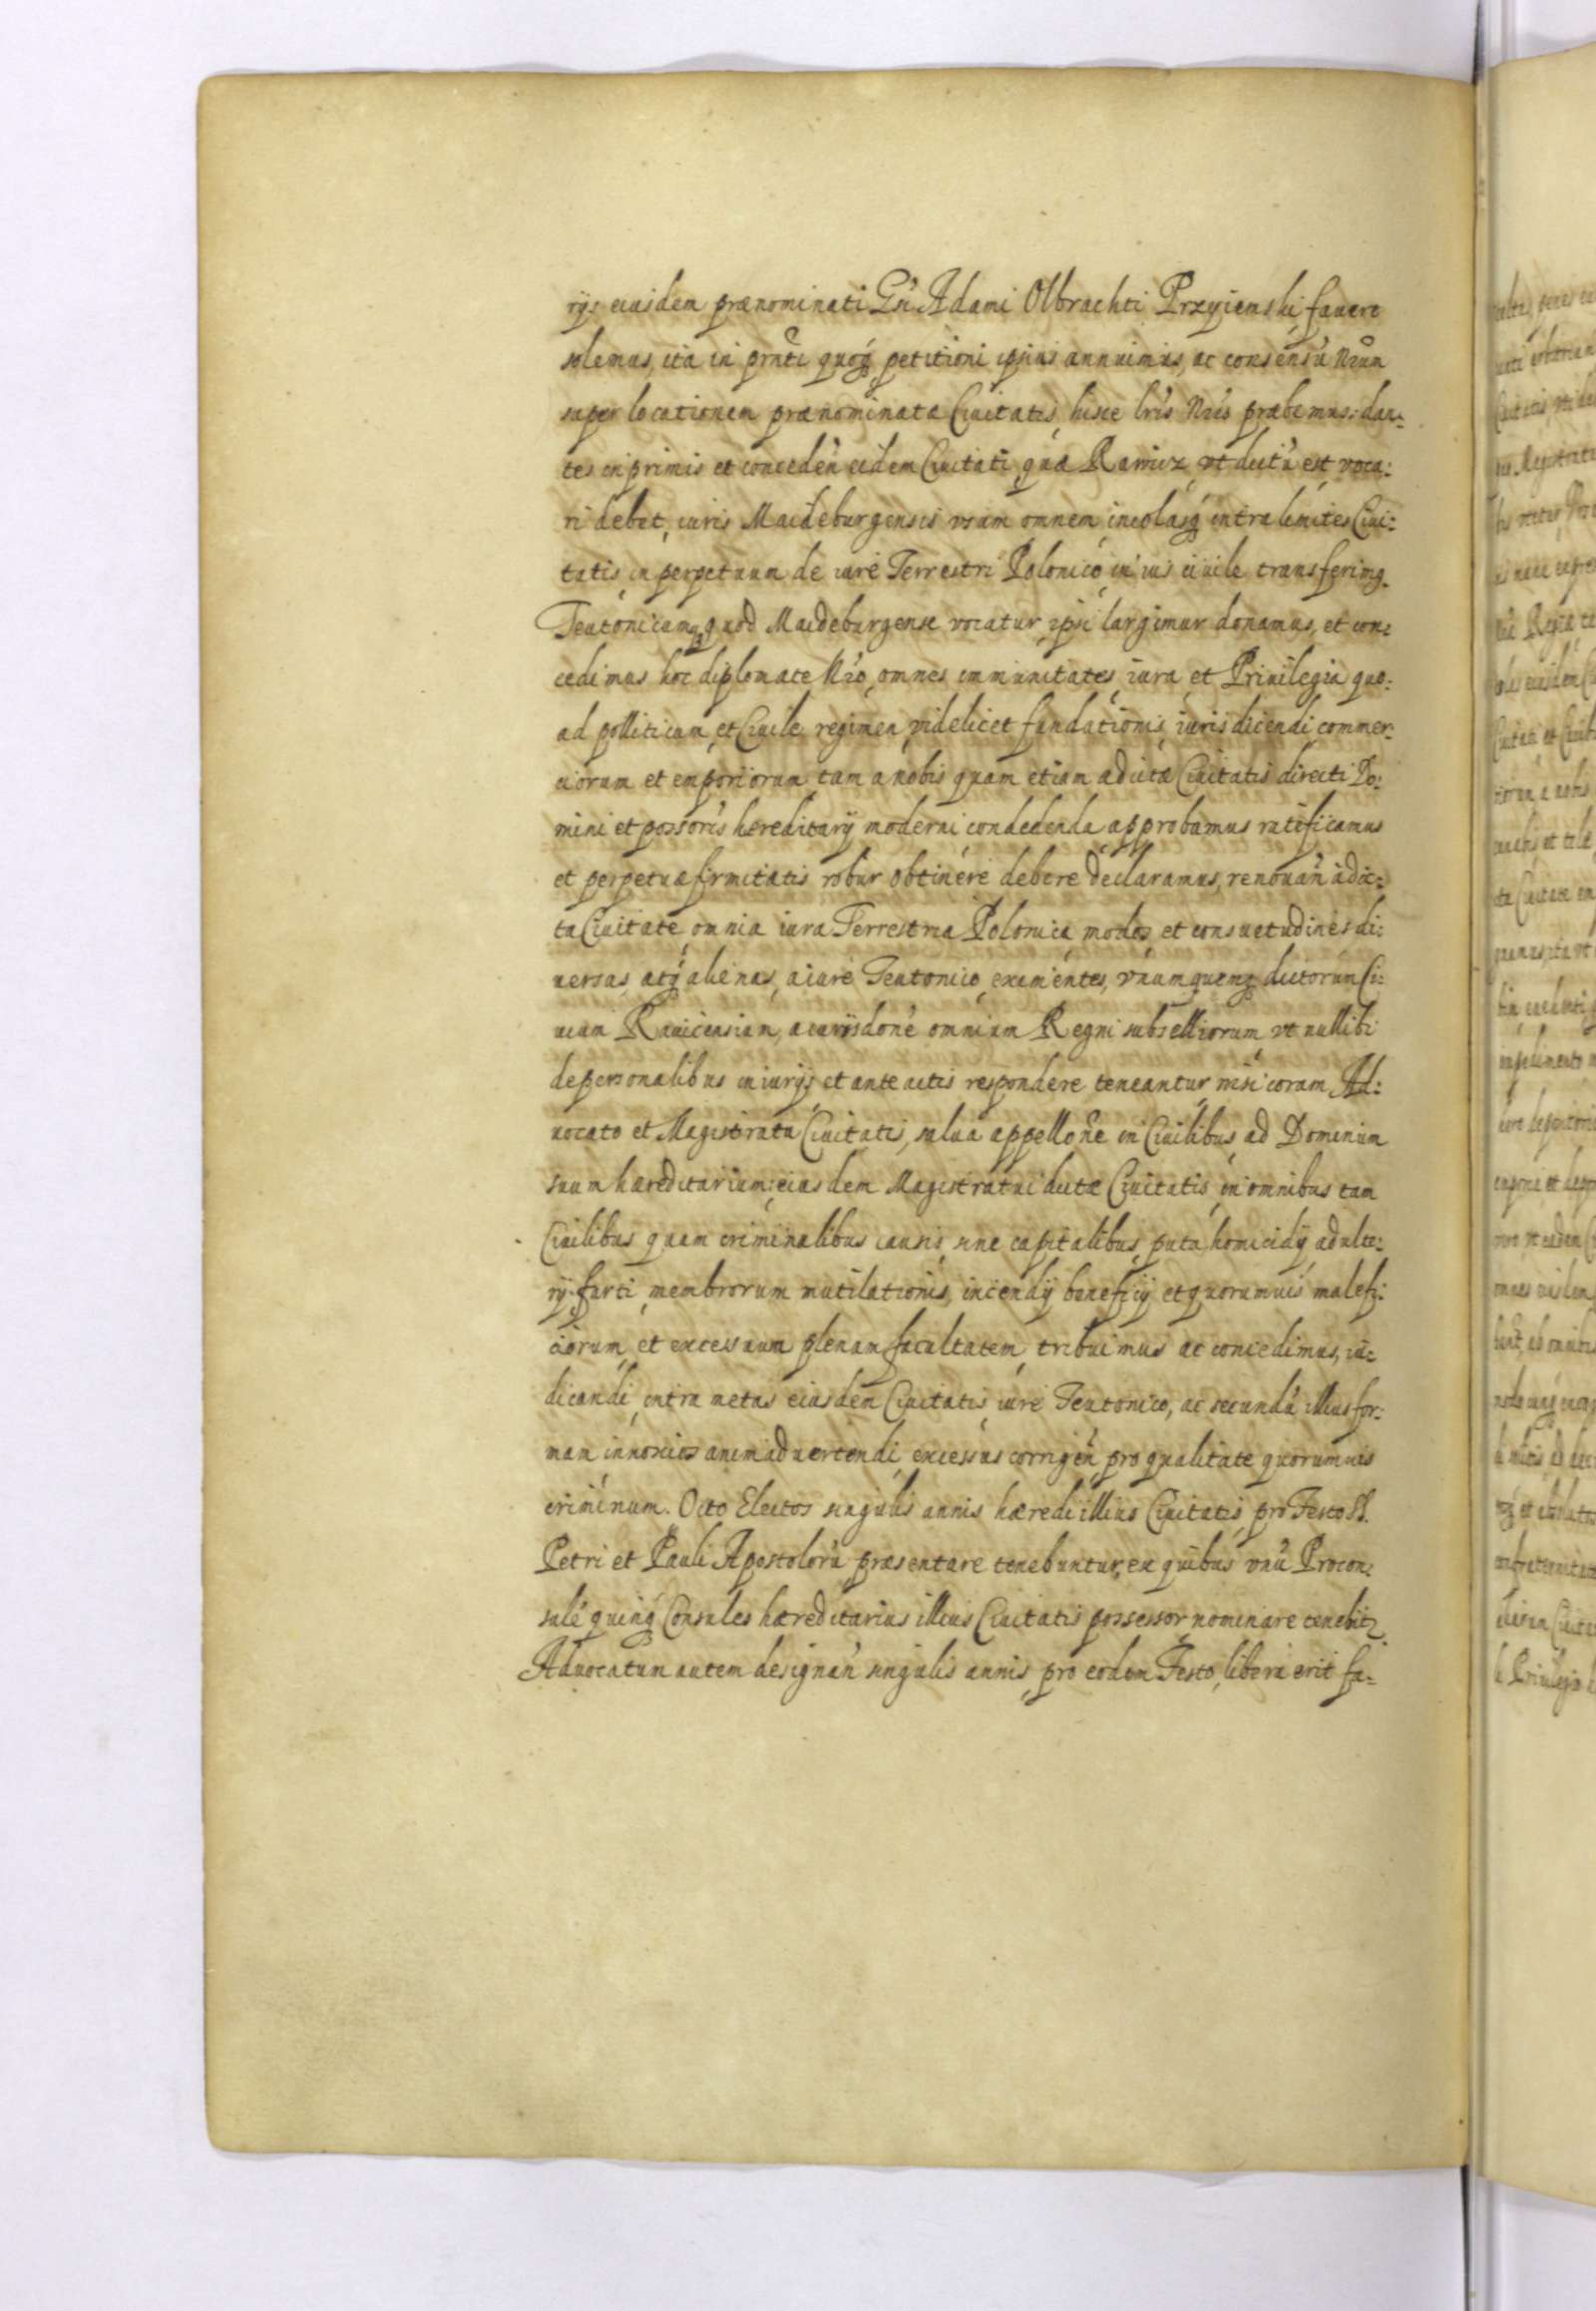 rijs eiusdem prænominati Gsi Adami Olbrachti Przyiemski favere
solemus, ita in prnti quoq petitioni ipsius annuimus, ac consensũ Nrũm
super locationem prænominatæ Ciuitatis, hisce lris Nris præbemus: dan=
tes inprimis et conceden eidem Ciuitati, quæ Rawicz, vt dictũ est, voca=
ri debet, iuris Maideburgensis vsum omnem, incolasq intra limites Ciui=
tatis, in perpetuum de iure Terrestri Polonico, in ius ciuile transferimq.
Teutonicumq quod Maideburgense vocatur ipsi largimur donamus, et con=
cedimus hoc diplomate Nro, omnes immunitates, iura, et Priuilegia quo=
ad polliticum, et Ciuile regimen, videlicet fundationis, iuris dicendi, commer=
ciorum et emporiorum tam a nobis quam etiam a dictæ Ciuitatis directi Do=
mini et possoris hereditarij moderni condedenda approbamus ratificamus
et perpetuæ firmitatis robur obtinere debere declaramus, renouan a dic=
ta Ciuitate, omnia iura Terrestria Polonica, modos, et consuetudines di=
uersas, atq alienas, a iure Teutonico, eximentes, vnumquemq dictorum Ci=
uium Rauicensium, a iurisdone omnium Regni subselliorum, vt nullibi
de personalibus iniurijs et ante actis respondere teneantur, nisi coram Ad=
uocato et Magistratu Ciuitatis, salua appellone in Ciuilibus, ad Dominum
suum hæreditarium: eiusdem Magistratui dictæ Ciuitatis, in omnibus tam
Ciuilibus quam criminalibus causis, siue capitalibus, puta homicidij adulte=
rij. furti, membrorum mutilationis, incendij beneficij et quorumuis malefi=
ciorum, et excessuum plenam facultatem, tribuimus ac concedimus, iu=
dicandi, intra metas eiusdem Ciuitatis, iure Teutonico, ac secundũ illius for=
mam in noxios animaduertendi, excessus corrigen pro qualitate quorumuis
criminum. Octo Electos singulis annis hæredi illius Ciuitatis pro Festo SS.
Petri et Pauli Apostolorũ præsentare tenebuntur, ex quibus vnũ Procon=
sulẽ quinq Consules hæreditarius illius Ciuitatis possessor, nominare tenebitr.
Aduocatum autem designan singulis annis, pro eodem Festo, libera erit fa=